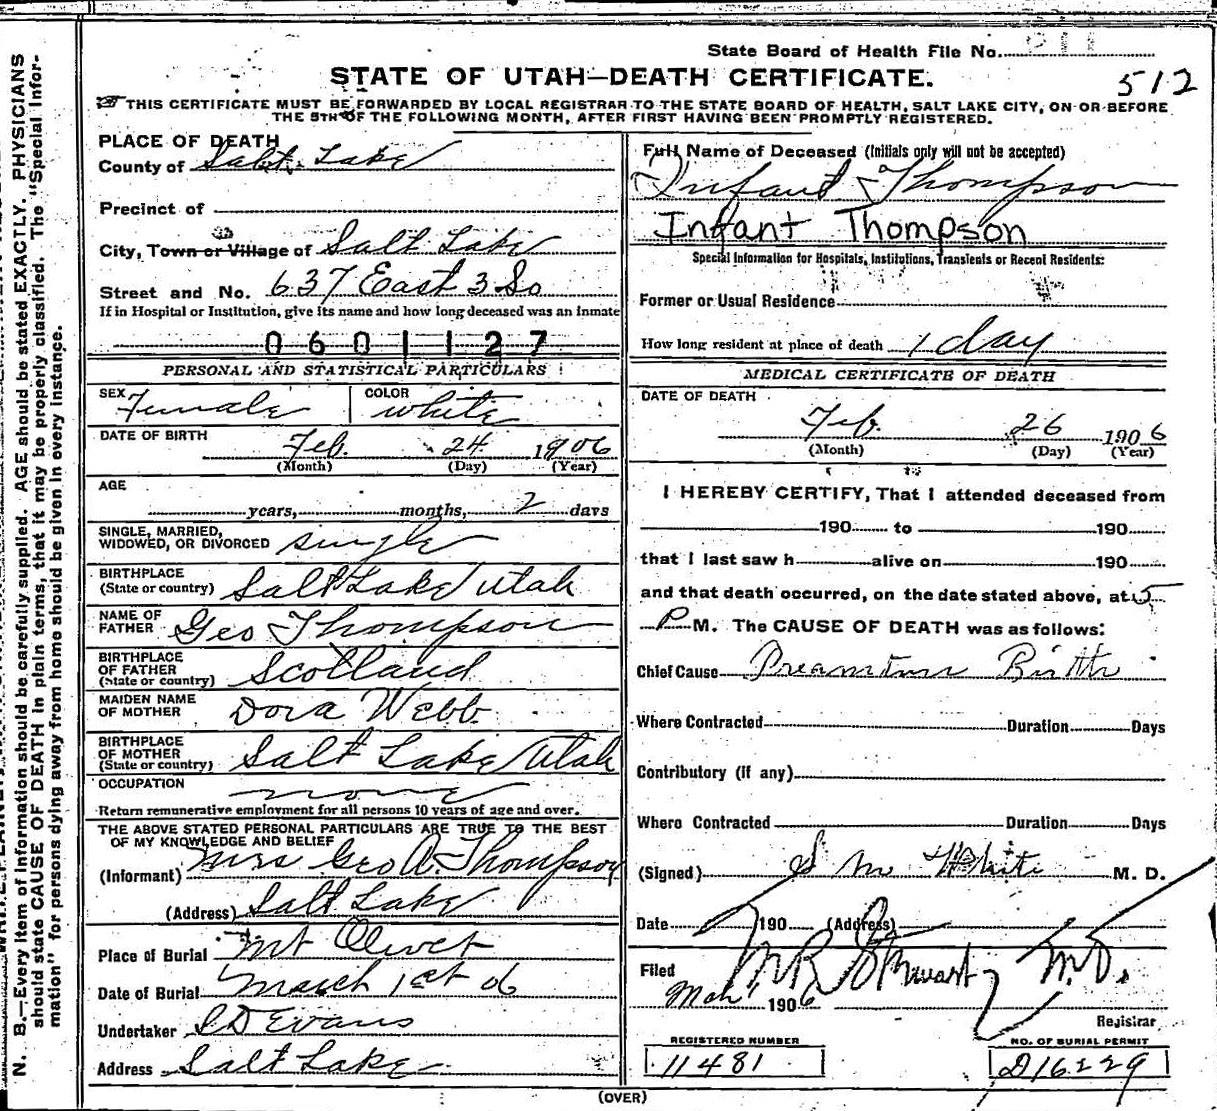 State Board of Health File No.
512
STATE OF UTAH—DEATH CERTIFICATE.
THIS CERTIFICATE MUST BE FORWARDED BY LOCAL REGISTRAR TO THE STATE BOARD OF HEALTH, SALT LAKE CITY, ON OR BEFORE
THE 5TH OF THE FOLLOWING MONTH, AFTER FIRST HAVING BEEN PROMPTLY REGISTERED.
PLACE OF DEATH
County of Salt Lake
Precinct of
City, Town or Village of Salt Lake
Street and No. 637 East 3 So
If in Hospital or Institution, give its name and how long deceased was an inmate
0601127
PERSONAL AND STATISTICAL PARTICULARS
SEX Female COLOR white
DATE OF BIRTH
Feb. 24 1906
(Month) (Day) (Year)
AGE
years, months, 2 days
SINGLE, MARRIED,
WIDOWED, OR DIVORCED single
BIRTHPLACE
(State or country) Salt Lake Utah
NAME OF
FATHER Geo Thompson
BIRTHPLACE
OF FATHER
(State or country) Scotland
MAIDEN NAME
OF MOTHER Dora Webb
BIRTHPLACE
OF MOTHER
(State or country) Salt Lake Utah
OCCUPATION
none
Return remunerative employment for all persons 10 years of age and over.
THE ABOVE STATED PERSONAL PARTICULARS ARE TRUE TO THE BEST
OF MY KNOWLEDGE AND BELIEF
(Informant) Mrs Geo A. Thompson
(Address) Salt Lake
Place of Burial Mt Olivet
Date of Burial March 1st 06
Undertaker S D Evans
Address Salt Lake
Full Name of Deceased (Initials only will not be accepted)
Infant Thompson
Infant Thompson
Special Information for Hospitals, Institutions, Transients or Recent Residents:
Former or Usual Residence
How long resident at place of death 1 day
MEDICAL CERTIFICATE OF DEATH
DATE OF DEATH
Feb. 26 1906
(Month) (Day) (Year)
I HEREBY CERTIFY, That I attended deceased from
190 to 190
that I last saw h alive on 190
and that death occurred, on the date stated above, at 5
P M. The CAUSE OF DEATH was as follows:
Chief Cause Preamture Birth
Where Contracted Duration Days
Contributory (if any)
Where Contracted Duration Days
(Signed) S M White M. D.
Date 190 (Address)
M R Stewart M.D.
Filed
Mch 1 1906
Registrar
REGISTERED NUMBER
11481
NO. OF BURIAL PERMIT
D16229
(OVER)
N. B.—Every item of information should be carefully supplied. AGE should be stated EXACTLY. PHYSICIANS
should state CAUSE OF DEATH in plain terms, that it may be properly classified. The "Special Infor-
mation" for persons dying away from home should be given in every instance.